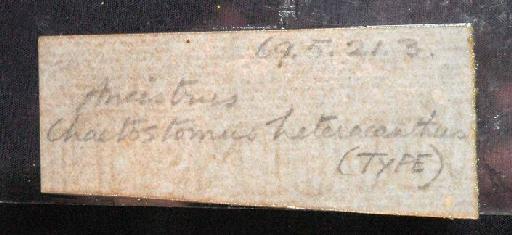 69.5.21.3.
Ancistrus
Chaetostomus heteracanthus
(TYPE)